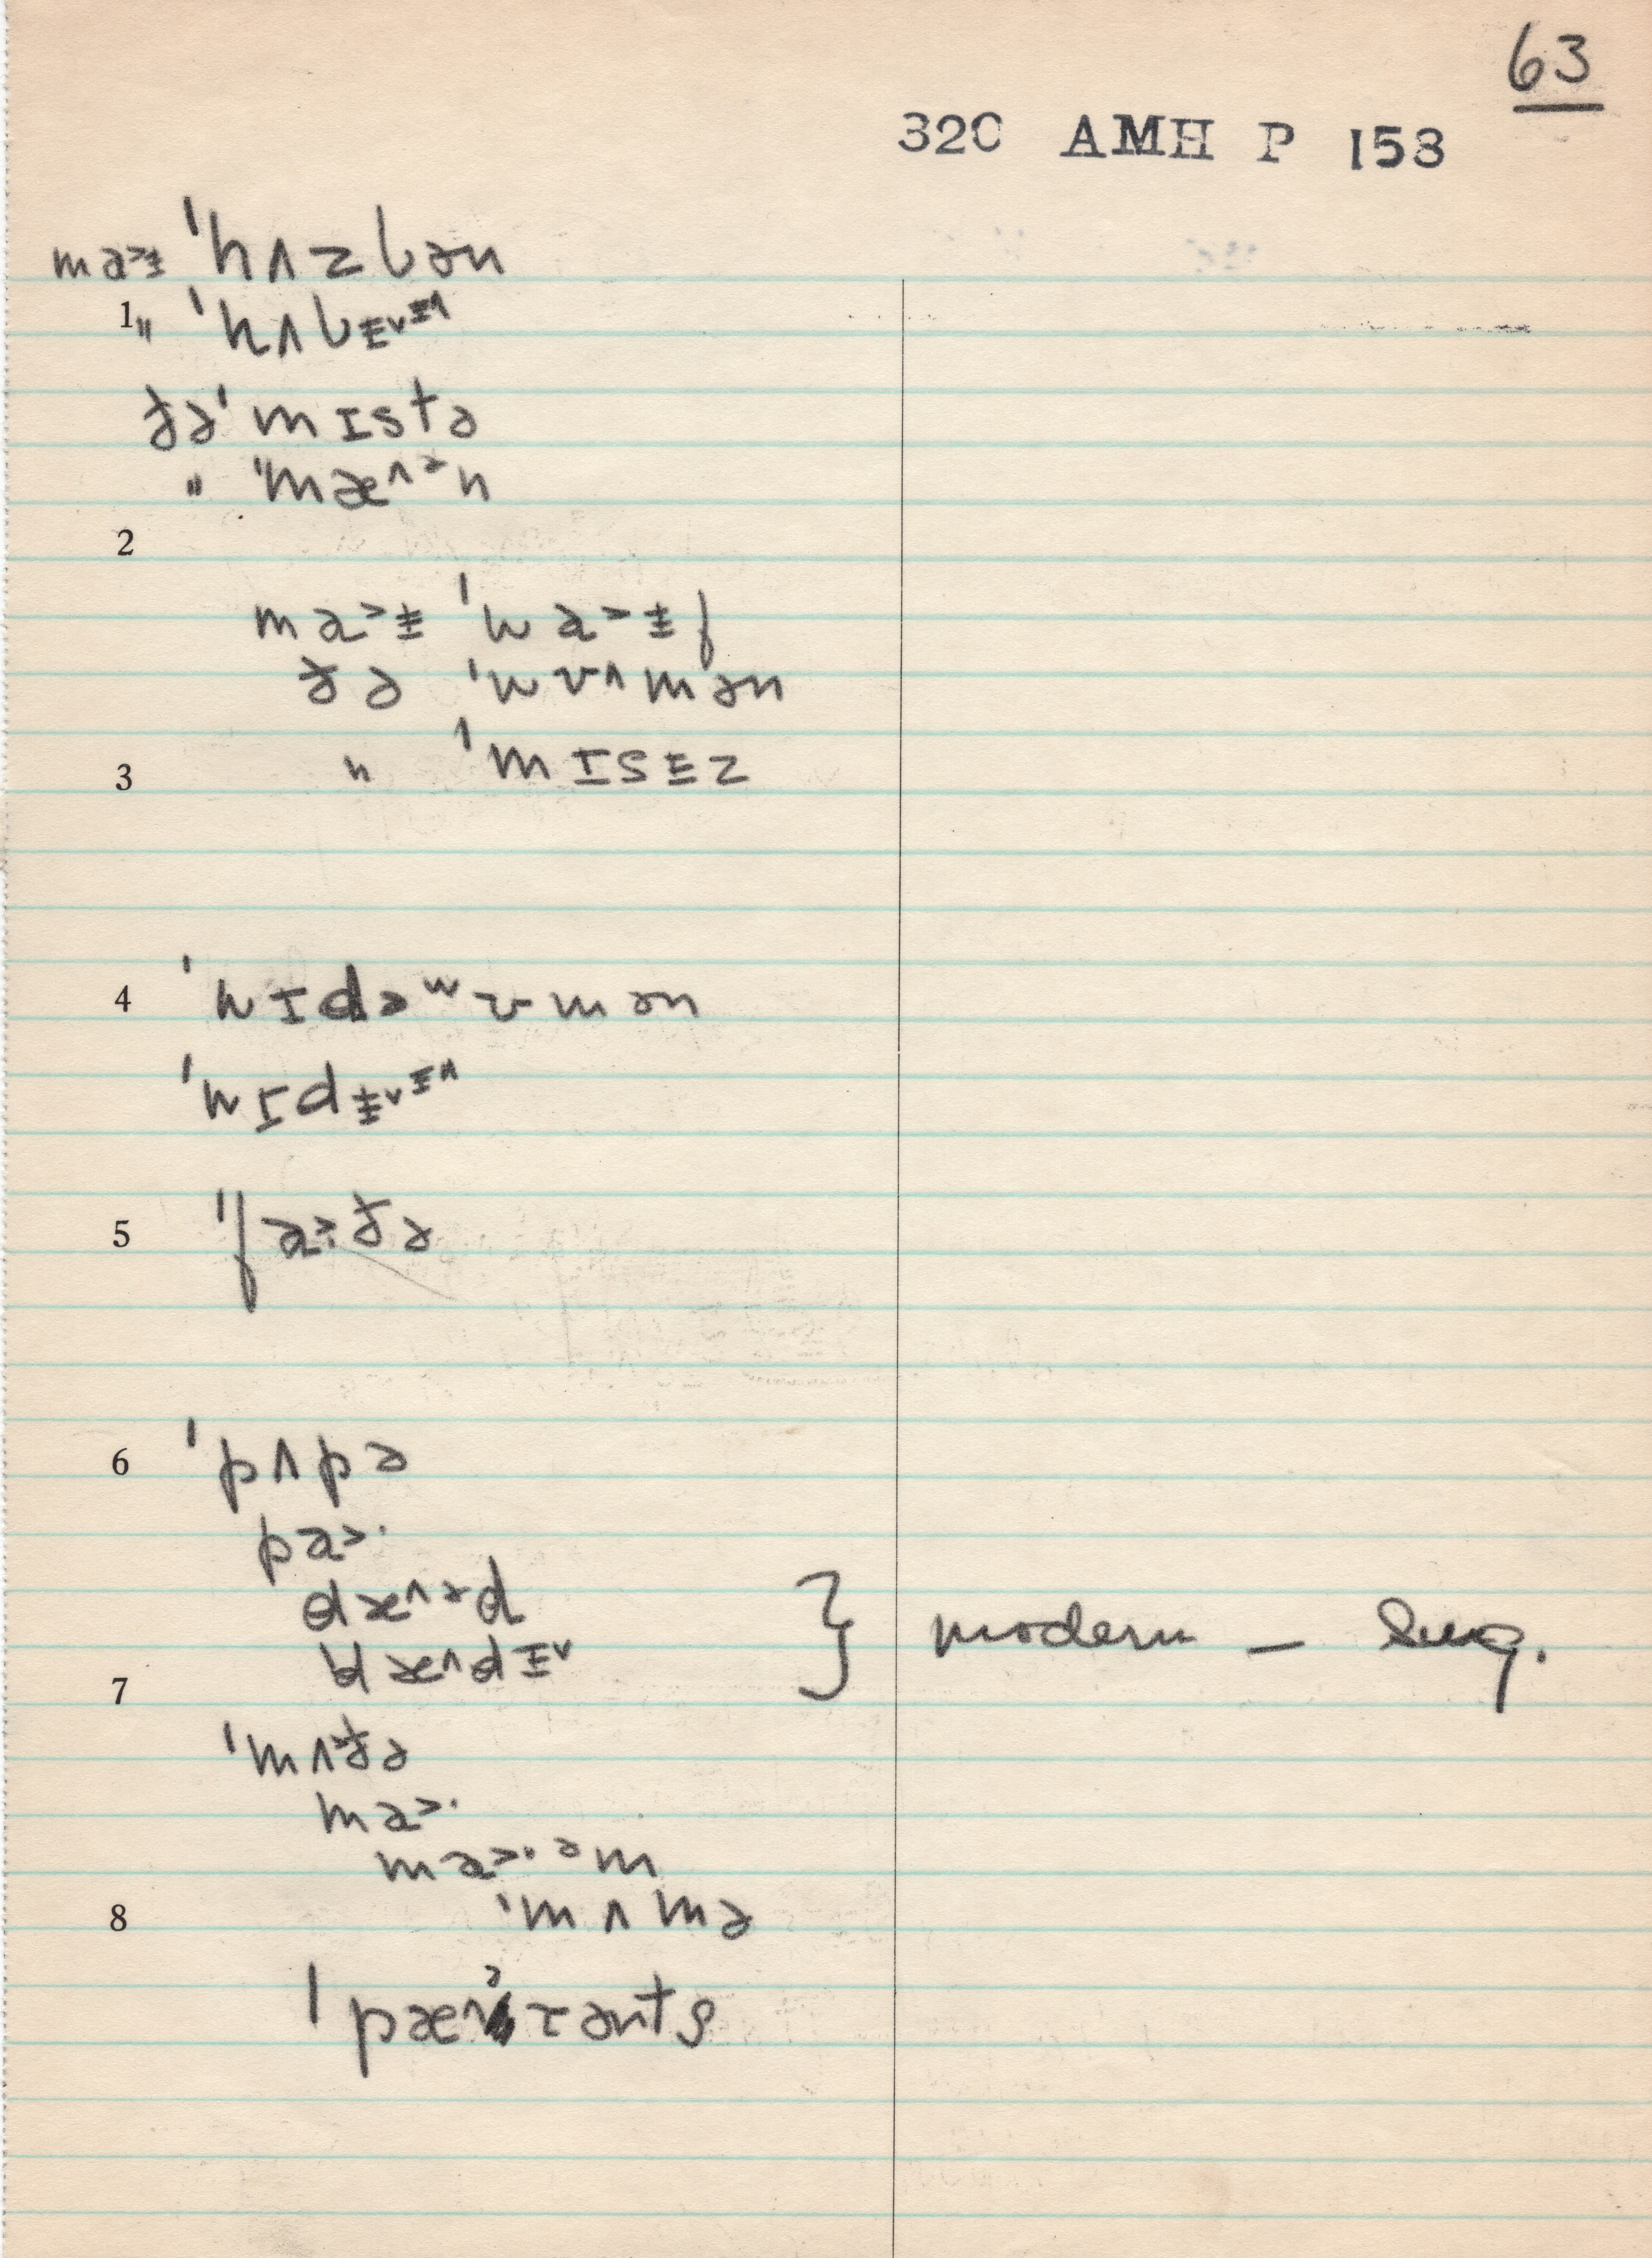 63
320 AMH P 153
ma˃ɨ ˈhʌzbən
1 " ˈhʌbɪ˅ɪ^
ðə ˈmɪstə
" ˈmæ^ᵊn
2
ma˃ɨ ˈwa˃ɨf
ðə ˈwʊ^mən
" ˈmɪsɪz
3
4 ˈwɪdəʷʊmən
ˈwɪdɨ˅ɪ^
5 ˈfa˃:ðə
6 ˈpʌpə
pa˃·
dæ^ᵊd
dæ^dɪ˅ } modern – Sug.
7
ˈmʌðə
ma˃·
ma˃·ᵊm
8 ˈmʌmə
ˈpæ^ᵊrənts